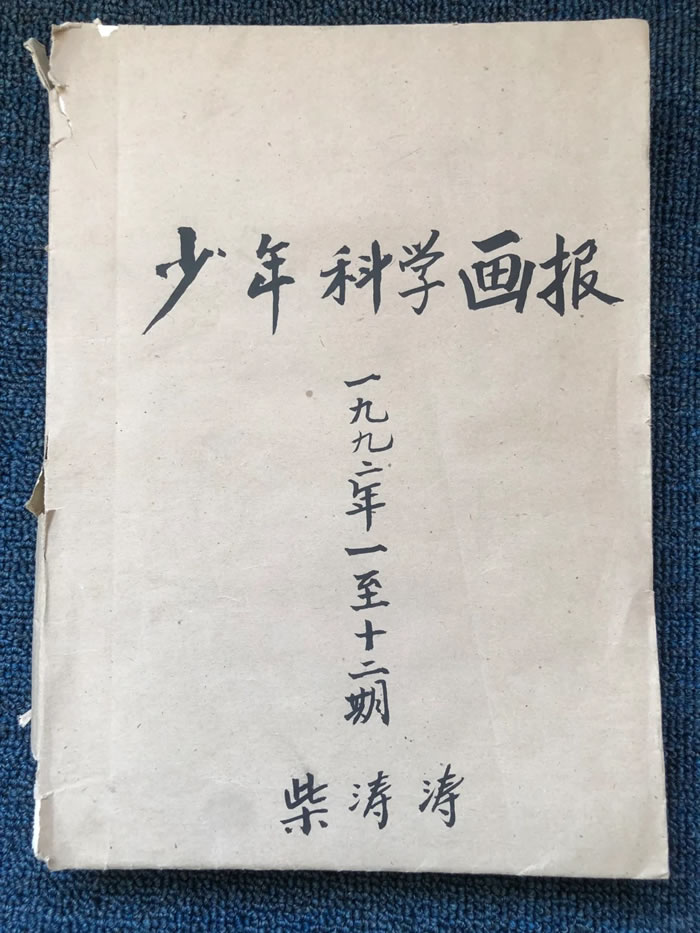 少年科学画报
一九九二年一至十二期
柴涛涛